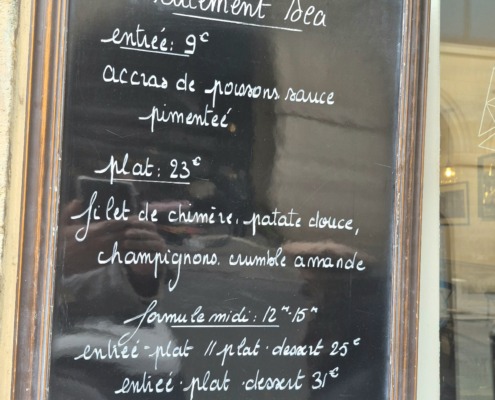 entreé: 9€
accras de poissons sauce
pimenteé
plat: 23€
filet de chimère, patate douce,
champignons. crumble amande
formule midi: 12H-15H
entreé-plat // plat-dessert 25€
entreé-plat-dessert 31€